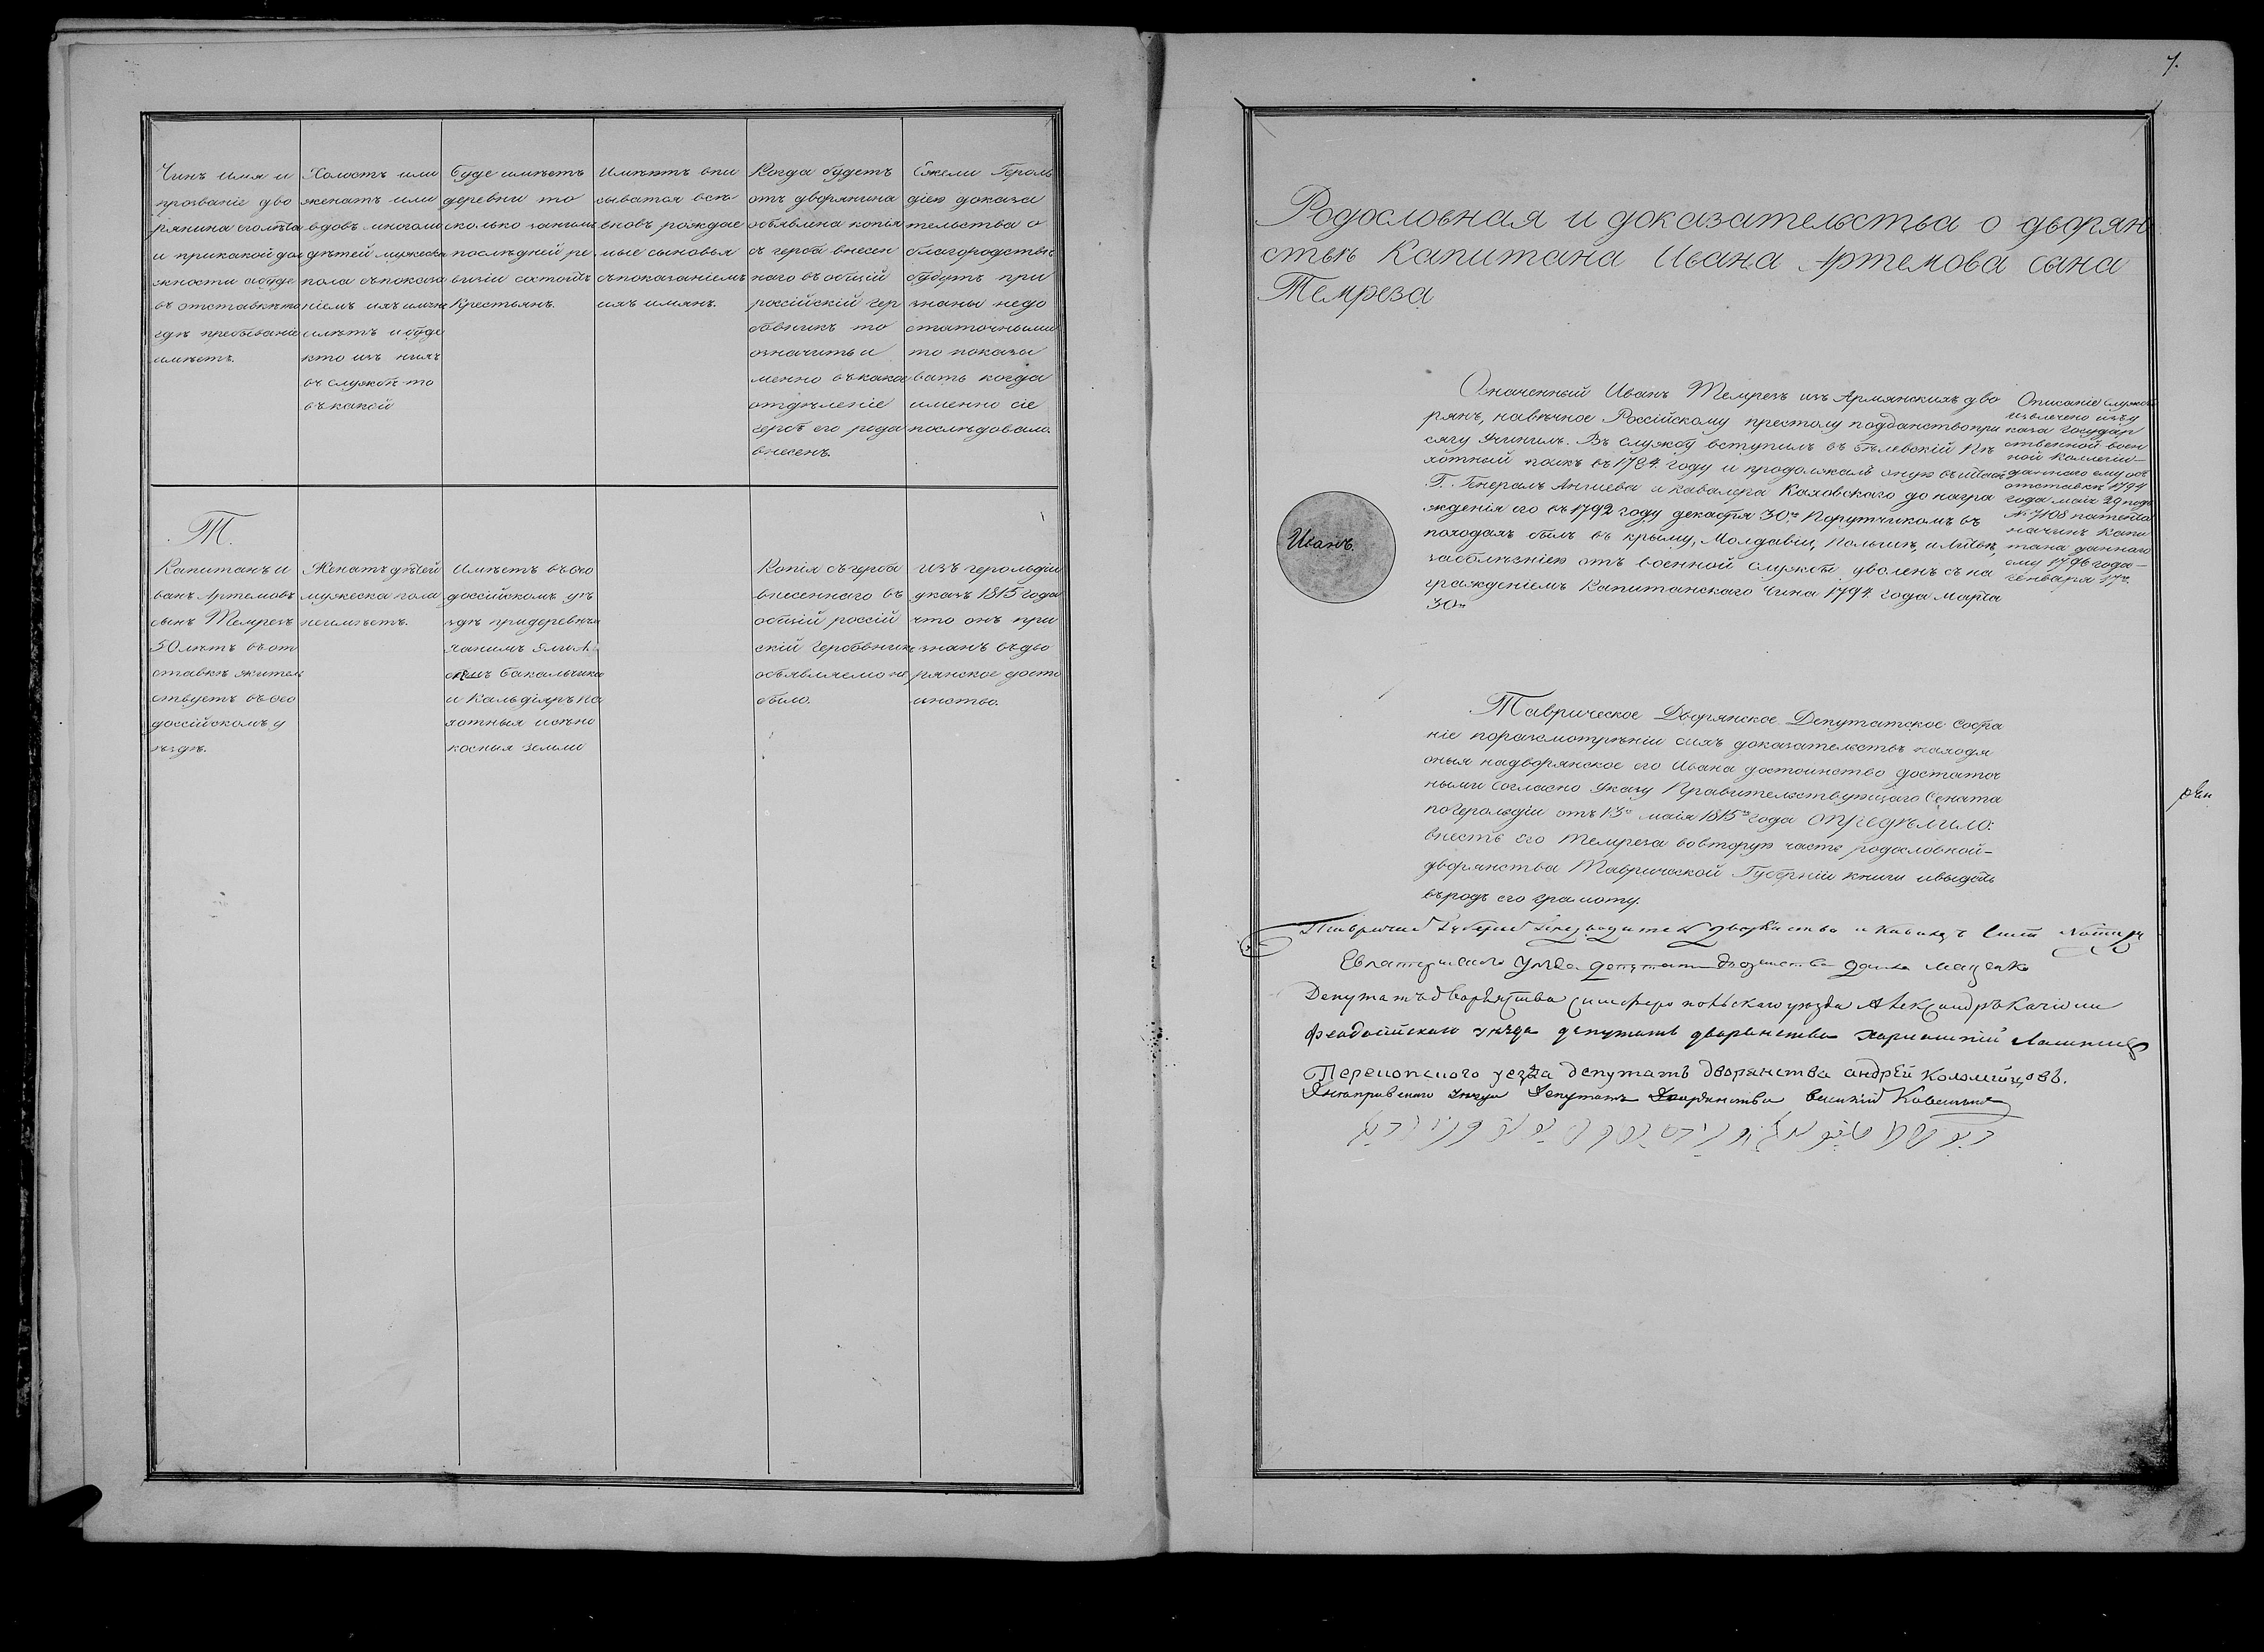 Чинъ имя и
прозваніе дво
рянина сколѣта
и прикакой дол
жности абуде
въ отставкѣ то
гдѣ пребываніе
имѣетъ.
Холостъ или
женатъ или
вдовъ многоли
дѣтей мужеска
пола съпоказа
ніемъ ихъ имянъ
илѣтъ ибуде
кто изъ нихъ
въ службѣ то
въкакой
Буде имѣетъ
деревни то
сколько занимъ
послѣдней ре
визіи состоитъ
Крестьянъ.
Имѣютъ впи
сыватся всѣ
вновь раждае
мые сыновья
съпоказаніемъ
ихъ имянъ.
Когда будетъ
отъ дворянина
объявлена копія
съ герба внесен
наго въ общій
россійскій гер
бовникъ то
означить и
менно въкакое
отдѣленіе
гербъ его рода
внесенъ.
Ежели Героль
діею доказа
тельства о
благородствѣ
будутъ при
знаны недо
статочными
то показы
вать когда
именно сіе
послѣдовало.
Т.
Капитанъ И
ванъ Артемовъ
сынъ Темрезъ
50 лѣтъ въ от
ставкѣ жител
ствуетъ въ Ѳео
доссійскомъ у
ѣздѣ.
Женатъ дѣтей
мужеска пола
неимѣетъ.
Имѣетъ въ Ѳео
доссійскомъ уѣ
здѣ придеревнѣ
ханимъ
и Кальдіяръ па
хотныя исѣно
косныя земли
Копія съ герба
внесеннаго въ
общій россій
скій Гербовникъ
объявляемо не
было.
Изъ герольдіи
указъ 1815 года
что онъ при
знанъ въ дво
рянское досто
инство.
7.
Родословная и доказательства о дворян
ствѣ Капитана Ивана Артемова сына
Темреза
Означенный Иванъ Темрезъ изъ Армянскихъ дво
рянъ, навѣчное Россійскому престолу подданствопри
сягу Учинилъ. Въ службу вступилъ въ бѣлевскій Пѣ
хотный полкъ въ 1784. году и продолжалъ оную въ штатѣ
Г. Генералъ Аншева и кавалера Каховскаго до награ
жденія его въ 1792 году декабря 30го Порутчикомъ въ
походахъ былъ въ крыму, Молдавіи, Польшѣ, и Литвѣ,
заболѣзнію отъ военной службы уволенъ съ на
гражденіемъ Капитанскаго Чина 1794. года марта
30го
Описаніе службы
извлечено изъ у
каза Государ
ственной воен
ной Коллегіи
даннаго ему объ
отставкѣ 1794
года маія 29 подъ
№ 7108 патента
на чинъ Капи
тана даннаго
ему 1796 года
генваря 17го
Иванъ.
Таврическое Дворянское Депутатское Собра
ніе поразсмотрѣніи сихъ доказательствъ находя
оныя надворянское его Ивана достоинство достаточ
ными Согласно Указу Правительствующаго Сената
погерольдіи отъ 13го маія 1815го года ОПРЕДѢЛИЛО:
внесть его Темреза вовторую часть родословной
дворянства Таврической Губерніи книги ивыдать
въродъ его грамоту.
Депутатъ дворянства симферопольскаго уѣзда Александръ Качіони
Феодосійскаго уѣзда депутатъ дворянства
Перекопского уезда депутатъ дворянства андрѣй Коломійцовъ.
Днѣпровскаго уѣзда Депутатъ Дворянства